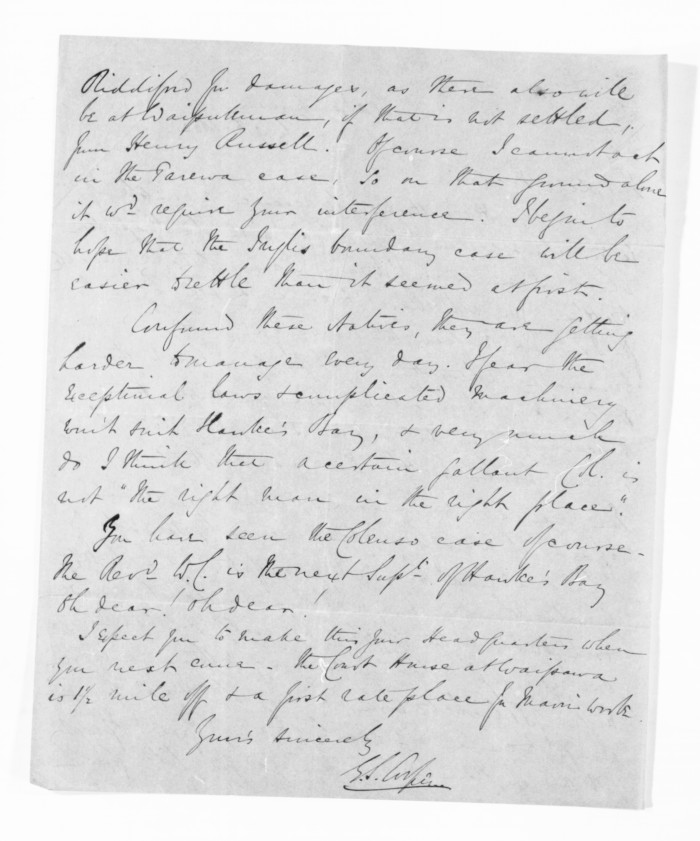 Riddiford for damages, as there also will
be at Waipukurau, if that is not settled,
from Henry Russell. Of course I cannot act
in the Tarewa case, so on that ground alone
it wd. require your interference. I begin to
hope that the Inglis boundary case will be
easier to settle than it seemed at first.
Confound these Natives, they are getting
harder to manage every day. I fear the
exceptional laws & complicated machinery
won't suit Hawke's Bay, & very much
do I think that a certain gallant Col. is
not "the right man in the right place".
You have seen the Colenso case of course -
the Revd. W.C. is the next Supt. of Hawke's Bay
Oh dear! Oh dear!
I expect you to make this your Headquarters when
you next come - the Court House at Waipawa
is 1½ mile off & a first rate place for Maori work.
Your's sincerely